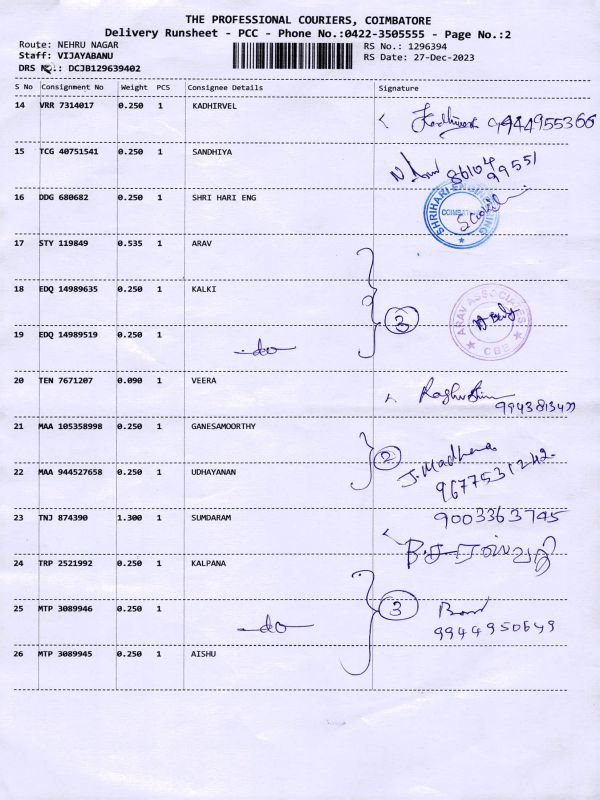 THE PROFESSIONAL COURIERS, COIMBATORE
Delivery Runsheet - PCC - Phone No.:0422-3505555 - Page No.:2
Route: NEHRU NAGAR
RS No.: 1296394
Staff: VIJAYABANU
RS Date: 27-Dec-2023
DRS No.: DCJB129639402
S No Consignment No Weight PCS Consignee Details Signature
14 VRR 7314017 0.250 1 KADHIRVEL
9944955366
15 TCG 40751541 0.250 1 SANDHIYA
86104 99551
16 DDG 680682 0.250 1 SHRI HARI ENG
SHRIHARI ENGINEERING
COIMBATORE
17 STY 119849 0.535 1 ARAV
18 EDQ 14989635 0.250 1 KALKI
3
ARAV ASSOCIATES
CBE
19 EDQ 14989519 0.250 1
-do-
20 TEN 7671207 0.090 1 VEERA
21 MAA 105358998 0.250 1 GANESAMOORTHY
2
J. Madhena
22 MAA 944527658 0.250 1 UDHAYANAN
9677531242
23 TNJ 874390 1.300 1 SUMDARAM
9003363745
24 TRP 2521992 0.250 1 KALPANA
25 MTP 3089946 0.250 1
3
-do-
9944950649
26 MTP 3089945 0.250 1 AISHU